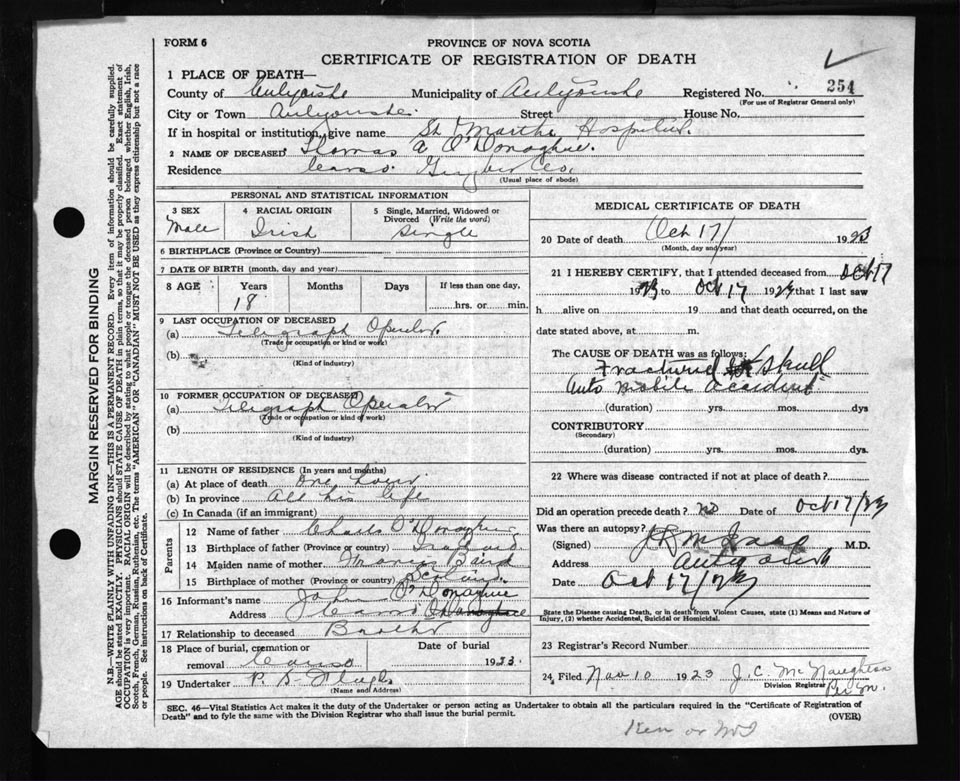 FORM 6
PROVINCE OF NOVA SCOTIA
CERTIFICATE OF REGISTRATION OF DEATH
1 PLACE OF DEATH—
County of Municipality of Registered No. 254
(For use of Registrar General only)
City or Town Street House No.
If in hospital or institution, give name St Martha Hospital.
2 NAME OF DECEASED Thomas A O'Donaghue.
Residence Canso. Guysboro Co.
(Usual place of abode)
PERSONAL AND STATISTICAL INFORMATION
3 SEX Male
4 RACIAL ORIGIN Irish
5 Single, Married, Widowed or Divorced (Write the word) Single
6 BIRTHPLACE (Province or Country)
7 DATE OF BIRTH (month, day and year)
8 AGE Years Months Days If less than one day,
18 hrs. or min.
9 LAST OCCUPATION OF DECEASED
(a) Telegraph Operator.
(Trade or occupation or kind of work)
(b)
(Kind of industry)
10 FORMER OCCUPATION OF DECEASED
(a) Telegraph Operator
(Trade or occupation or kind of work)
(b)
(Kind of industry)
11 LENGTH OF RESIDENCE (In years and months)
(a) At place of death One hour
(b) In province All his life
(c) In Canada (if an immigrant)
Parents
12 Name of father Charles O'Donaghue
13 Birthplace of father (Province or country)
14 Maiden name of mother Baird
15 Birthplace of mother (Province or country)
16 Informant's name John O'Donaghue
Address Canso
17 Relationship to deceased Brother
18 Place of burial, cremation or removal Canso Date of burial 1923.
19 Undertaker P. S.
(Name and Address)
MEDICAL CERTIFICATE OF DEATH
20 Date of death Oct 17/ 1923
(Month, day and year)
21 I HEREBY CERTIFY, that I attended deceased from Oct 17
1923 to Oct 17 1923 that I last saw
h alive on 19 and that death occurred, on
date stated above, at m.
The CAUSE OF DEATH was as follows:
Fractured skull
"Auto mobile accident"
(duration) yrs. mos. dys
CONTRIBUTORY
(Secondary)
(duration) yrs. mos. dys.
22 Where was disease contracted if not at place of death?
Did an operation precede death? no Date of Oct 17/23
Was there an autopsy?
(Signed) M.D.
Address Antigonish
Date Oct 17/23
State the Disease causing Death, or in death from Violent Causes, state (1) Means and Nature of Injury, (2) whether Accidental, Suicidal or Homicidal.
23 Registrar's Record Number
24 Filed Nov 10 1923 J. C. McNaughton
Division Registrar
SEC. 46—Vital Statistics Act makes it the duty of the Undertaker or person acting as Undertaker to obtain all the particulars required in the "Certificate of Registration of
Death" and to fyle the same with the Division Registrar who shall issue the burial permit. (OVER)
MARGIN RESERVED FOR BINDING
N.B.—WRITE PLAINLY WITH UNFADING INK—THIS IS A PERMANENT RECORD. Every item of information should be carefully supplied.
AGE should be stated EXACTLY. PHYSICIANS should STATE CAUSE OF DEATH in plain terms, so that it may be properly classified. Exact statement of
OCCUPATION is very important. RACIAL ORIGIN will be described by stating to what people or tongue the deceased person belonged whether English, Irish,
Scotch, French, German, Russian, Ruthenian, etc. The terms "AMERICAN" OR "CANADIAN" MUST NOT BE USED as they express citizenship but not a race
or people. See instructions on back of Certificate.